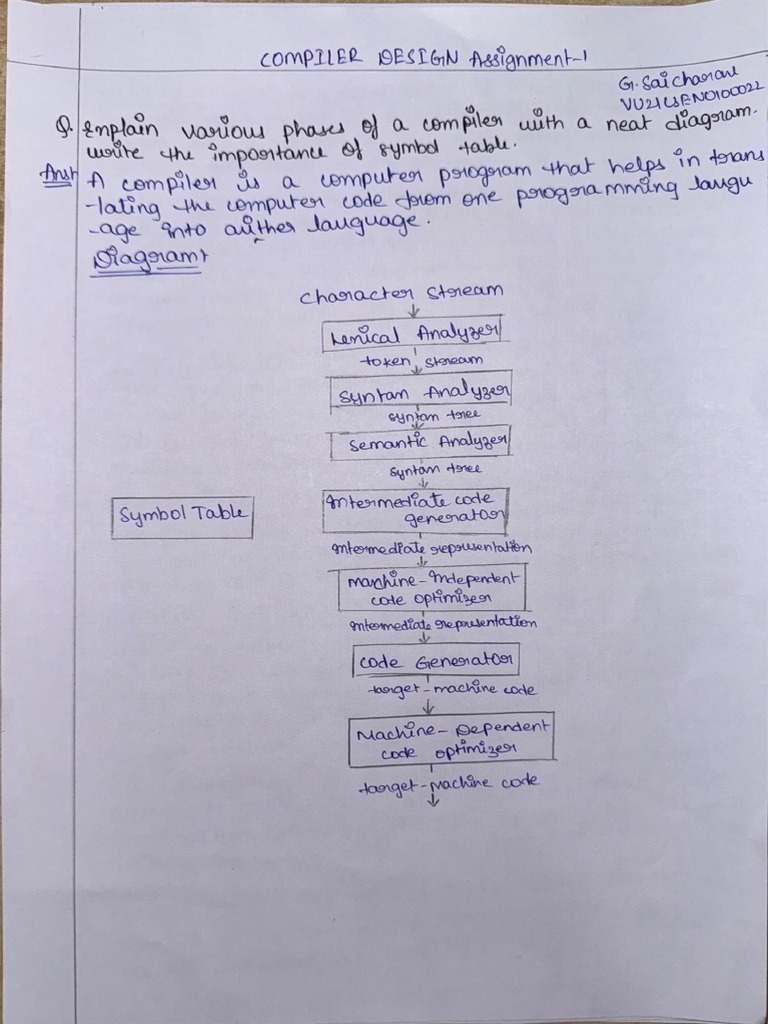 COMPILER DESIGN Assignment-1
G. Saicharan
VU21CSEN0100022
Q. Explain various phases of a compiler with a neat diagram.
write the importance of symbol table.
Ans: A compiler is a computer program that helps in trans
-lating the computer code from one programming langu
-age into auther language.
Diagram:
Character Stream
Lexical Analyzer
token stream
Syntax Analyzer
syntax tree
Semantic Analyzer
syntax tree
Symbol Table
Intermediate code
generator
Intermediate representation
Machine-Independent
code optimizer
Intermediate representation
Code Generator
target-machine code
Machine-Dependent
code optimizer
target-Machine code